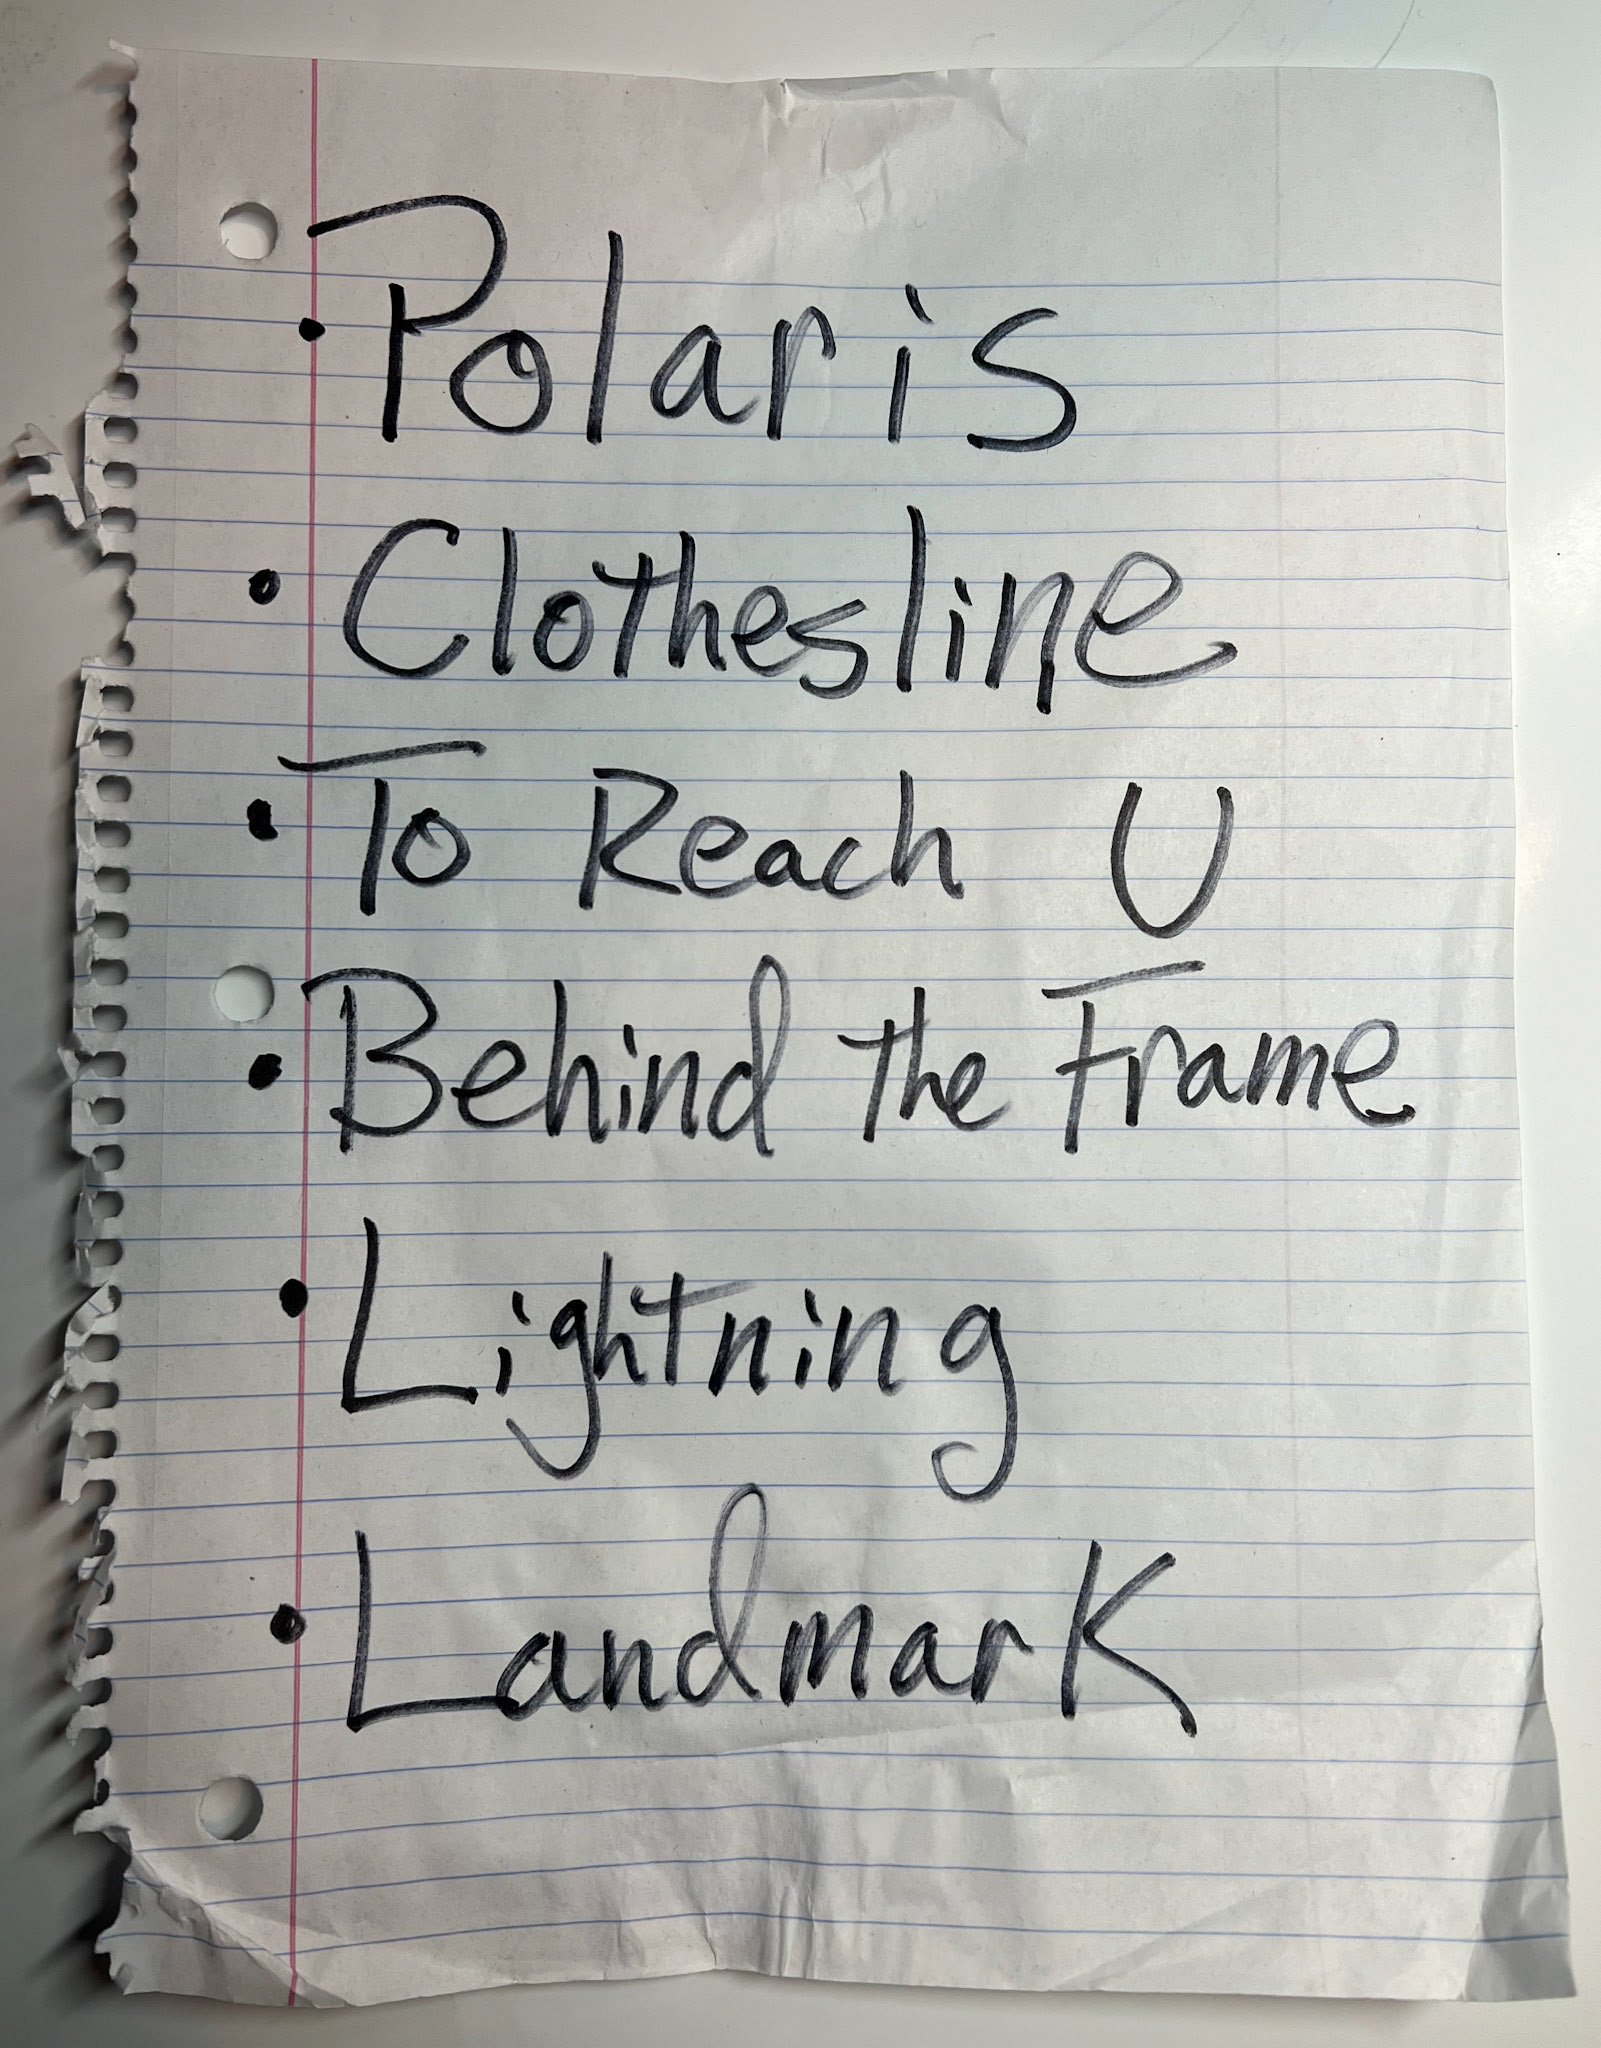 • Polaris
• Clothesline
• To Reach U
• Behind the Frame
• Lightning
• Landmark